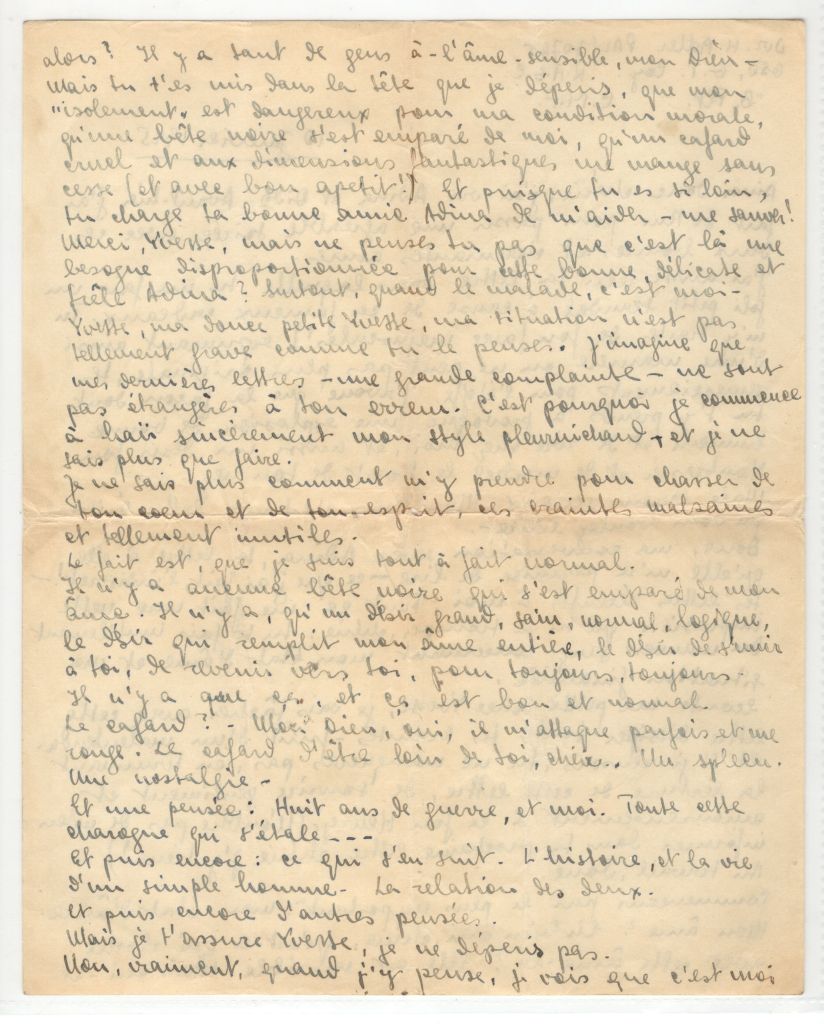 alors? Il y a tant de gens à-l'âme-sensible, mon Dieu -
Mais tu t'es mis dans la tête que je dépéris, que mon
"isolement" est dangereux pour ma condition morale,
qu'une bête noire s'est emparé de moi, qu'un cafard
cruel et aux dimensions fantastiques me mange sans
cesse (et avec bon apetit!) Et puisque tu es si loin,
tu charge ta bonne amie Adina de m'aider - me sauver!
Merci, Yvette, mais ne penses tu pas que c'est là une
besogne disproportionnée pour cette bonne, délicate et
frêle Adina? Surtout, quand le malade, c'est moi -
Yvette, ma douce petite Yvette, ma situation n'est pas
tellement grave comme tu le penses. J'imagine que
mes dernières lettres - une grande complainte - ne sont
pas étrangères à ton erreur. C'est pourquoi je commence
à haïr sincèrement mon style pleurnichard, et je ne
sais plus que faire.
Je ne sais plus comment m'y prendre pour chasser de
ton coeur et de ton esprit, ces craintes malsaines
et tellement inutiles.
Le fait est, que je suis tout à fait normal.
Il n'y a aucune bête noire qui s'est emparé de mon
âme. Il n'y a, qu'un désir grand, sain, normal, logique,
le désir qui remplit mon âme entière, le désir de s'unir
à toi, de revenir vers toi, pour toujours, toujours -
Il n'y a que ça, et ça est bon et normal.
Le cafard? - Mon Dieu, oui, il m'attaque parfois et me
ronge. Le cafard d'être loin de toi, chéri.. Un spleen.
Une nostalgie -
Et une pensée: Huit ans de guerre, et moi. Toute cette
charogne qui s'étale ---
Et puis encore: ce qui s'en suit. L'histoire, et la vie
d'un simple homme - La relation des deux.
Et puis encore d'autres pensées.
Mais je t'assure Yvette, je ne dépéris pas.
Non, vraiment, quand j'y pense, je vois que c'est moi